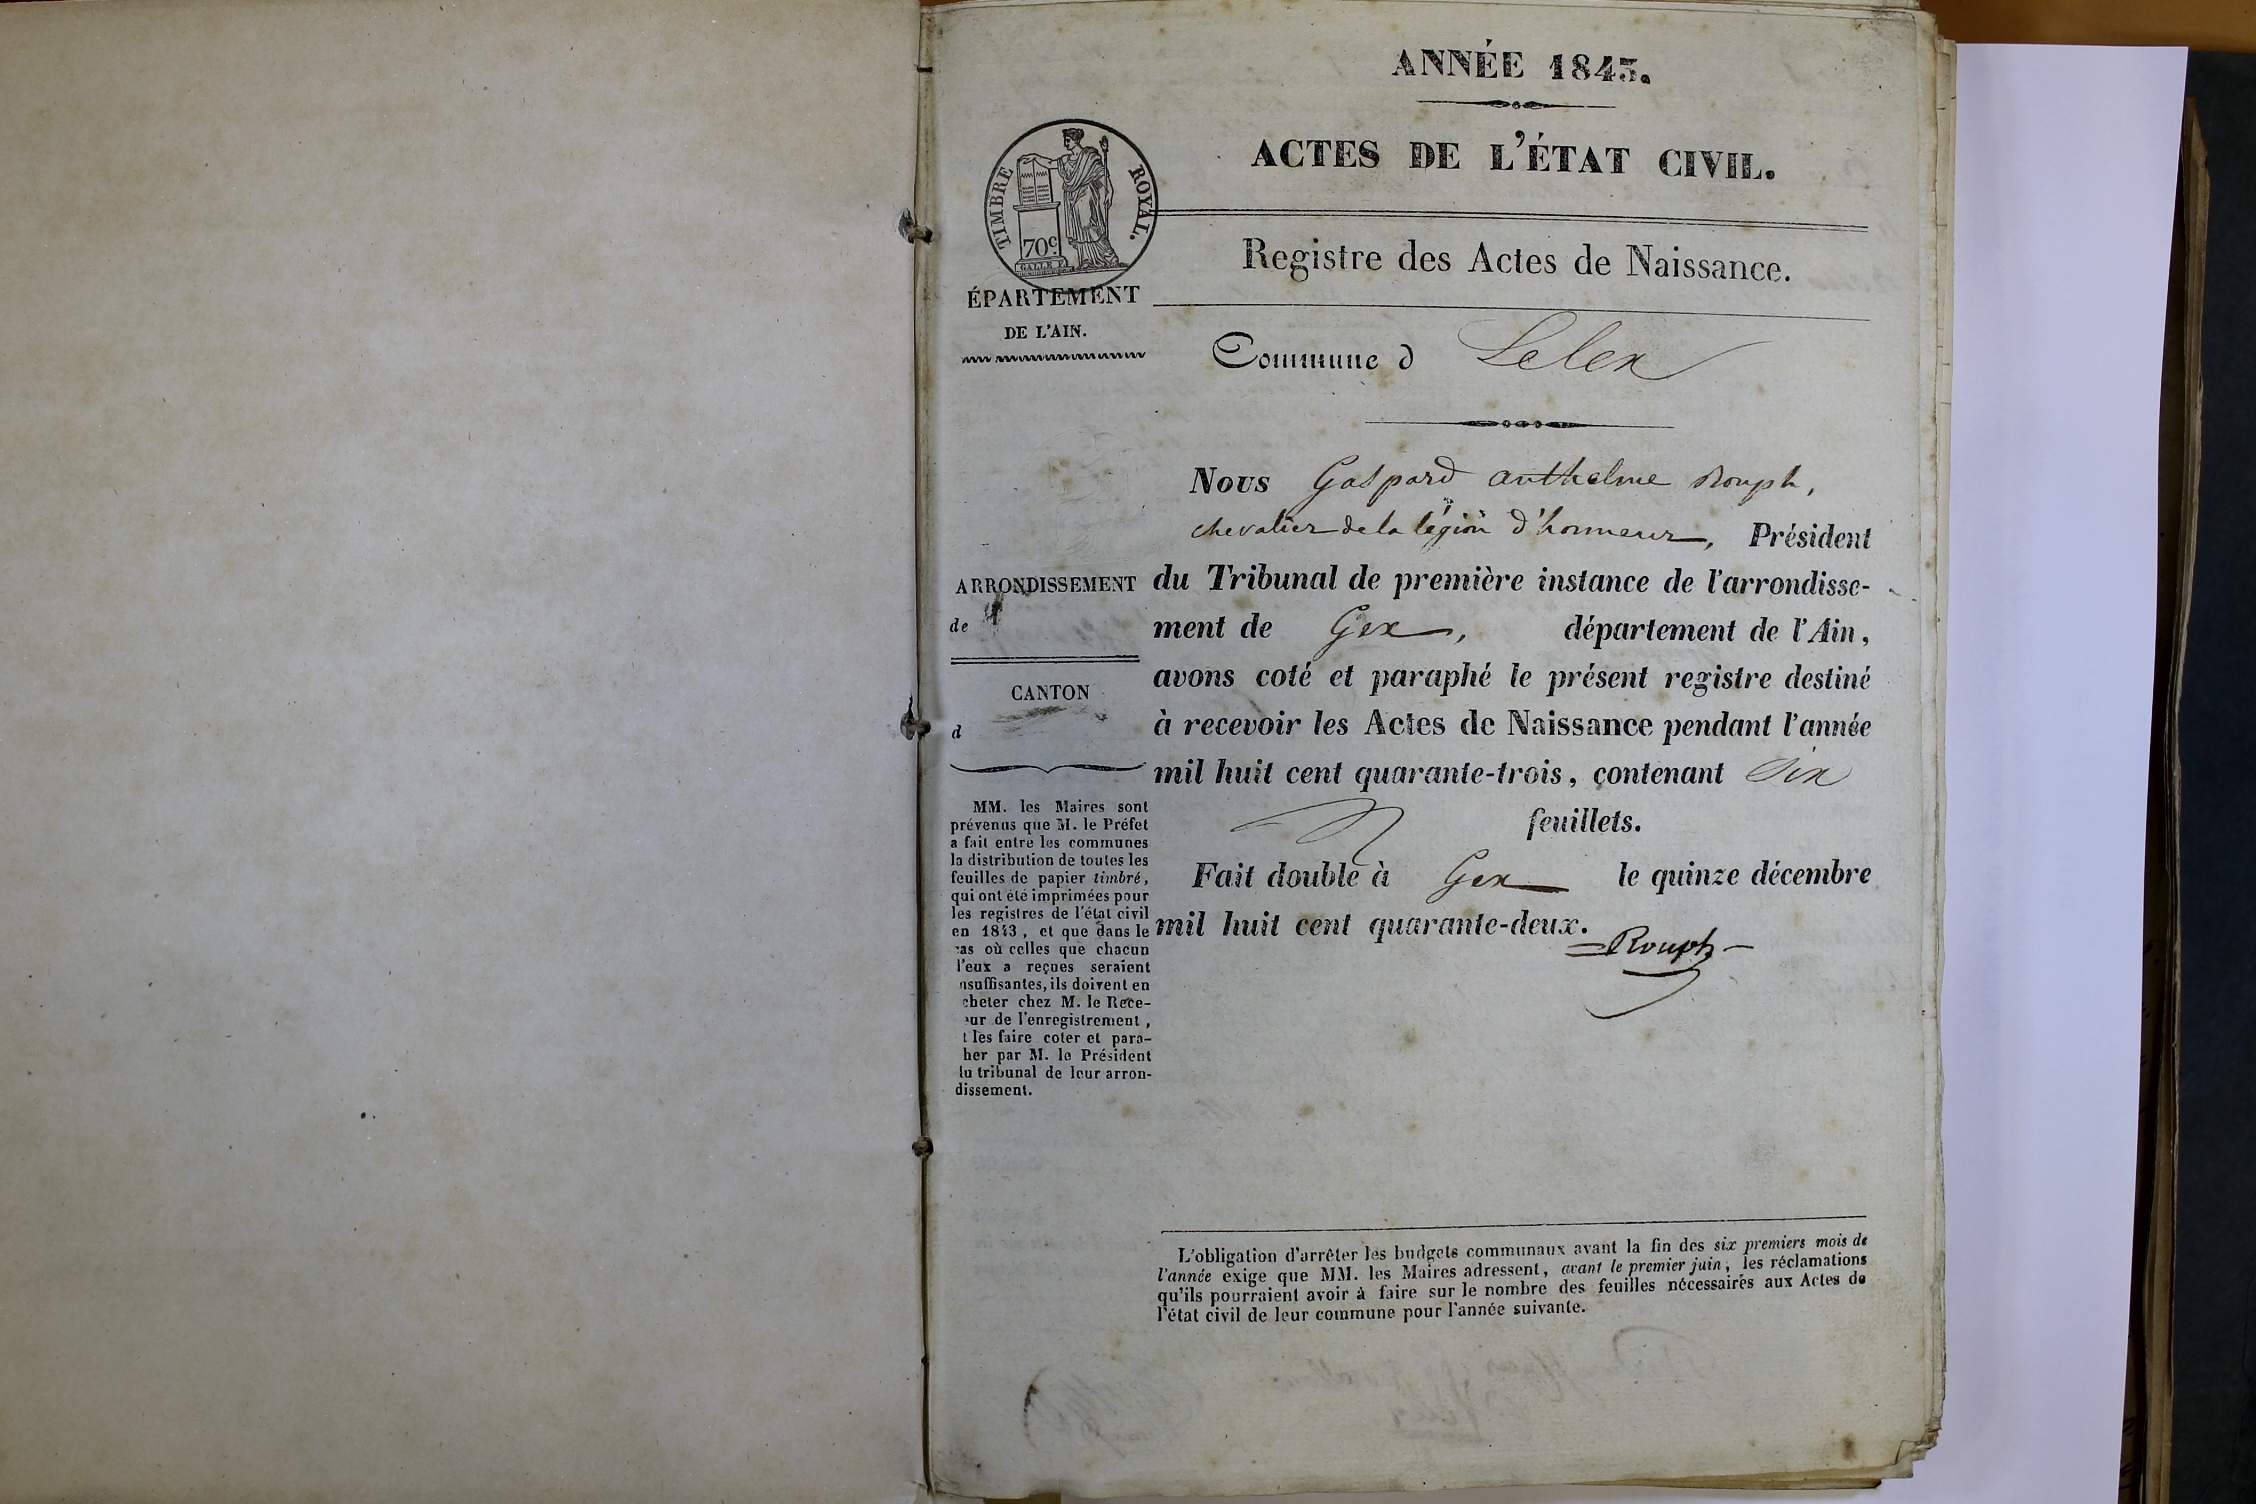 ANNÉE 1843.
ACTES DE L'ÉTAT CIVIL.
TIMBRE ROYAL.
70c
GALLE F.
Registre des Actes de Naissance.
ÉPARTEMENT
DE L'AIN.
Commune d Lelex
Nous Gaspard anthelme Rouph,
chevalier de la légion d'honneur, Président
du Tribunal de première instance de l'arrondisse-
ment de Gex, département de l'Ain,
avons coté et paraphé le présent registre destiné
à recevoir les Actes de Naissance pendant l'année
mil huit cent quarante-trois, contenant Six
feuillets.
Fait double à Gex le quinze décembre
mil huit cent quarante-deux.
Rouph
ARRONDISSEMENT
de
CANTON
d
MM. les Maires sont
prévenus que M. le Préfet
a fait entre les communes
la distribution de toutes les
feuilles de papier timbré,
qui ont été imprimées pour
les registres de l'état civil
en 1843, et que dans le
cas où celles que chacun
l'eux a reçues seraient
nsuffisantes, ils doivent en
cheter chez M. le Rece-
eur de l'enregistrement,
t les faire coter et para-
her par M. le Président
lu tribunal de leur arron-
dissement.
L'obligation d'arrêter les budgets communaux avant la fin des six premiers mois de
l'année exige que MM. les Maires adressent, avant le premier juin, les réclamations
qu'ils pourraient avoir à faire sur le nombre des feuilles nécessaires aux Actes de
l'état civil de leur commune pour l'année suivante.